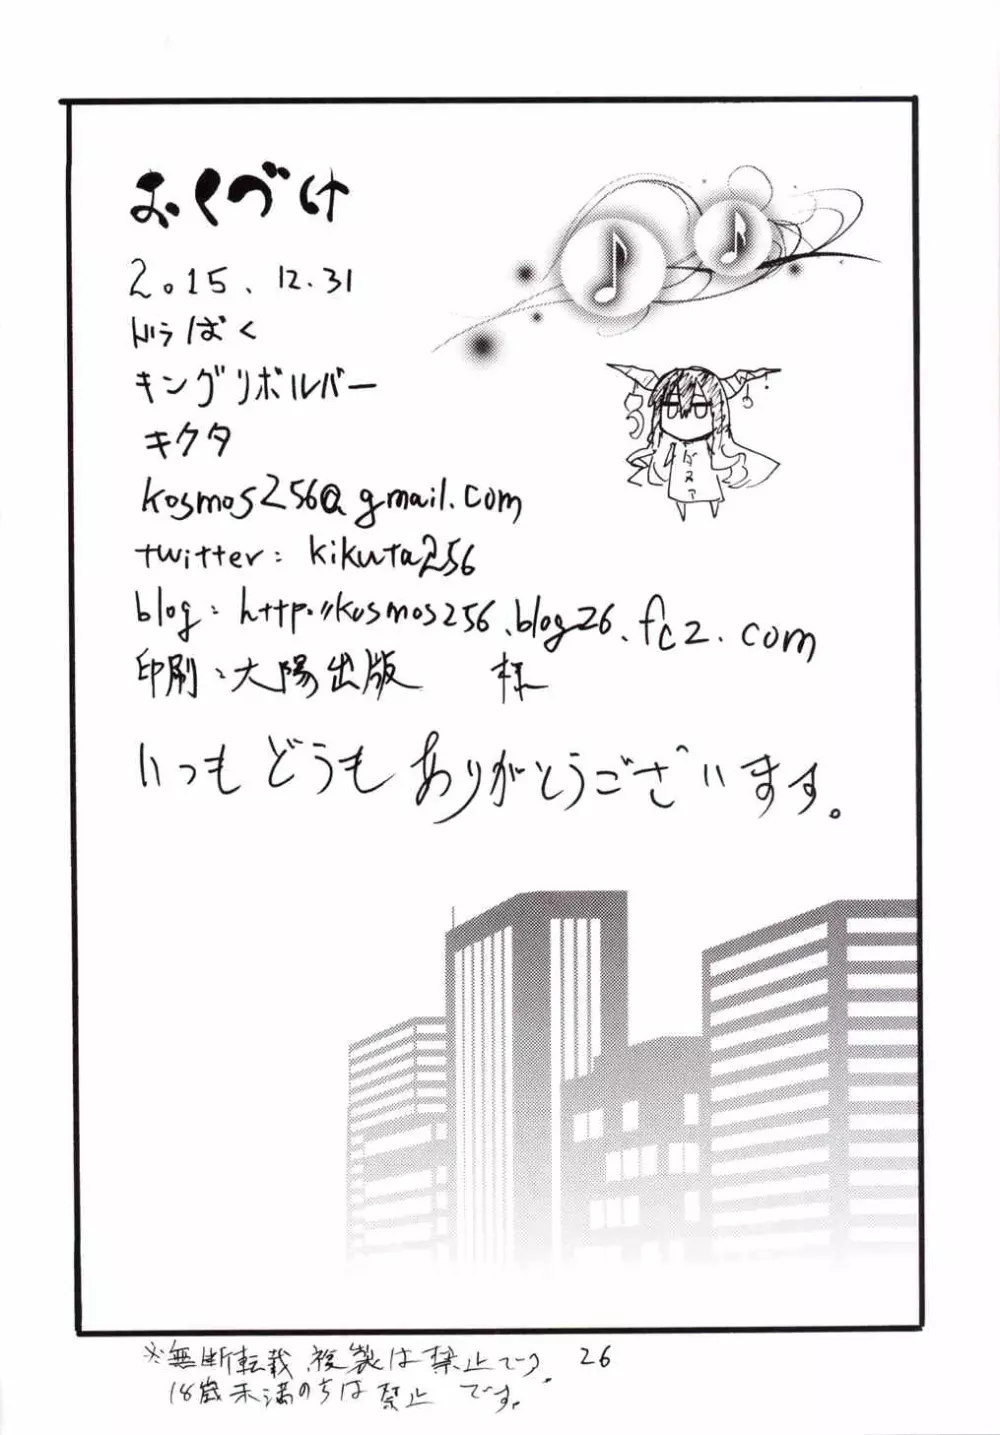 おくづけ
2015.12.31
ドラばく
キングリボルバー
キクタ
kosmos256@gmail.com
twitter: kikuta256
blog: http://kosmos256.blog26.fc2.com
印刷:大陽出版 様
いつもどうもありがとうございます。
※無断転載、複製は禁止です。 26
18歳未満のちは禁止です。